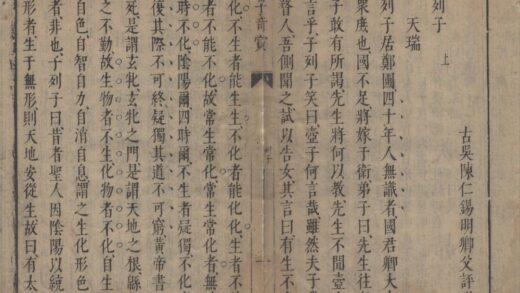 古吳陳仁錫明卿父評
列子 上
天瑞
列子居鄭圃四十年人無識者國君卿大
衆庶也國不足將嫁于衛弟子曰先生往
子敢有所謁先生將何以教先生不聞壺
言乎子列子笑曰壺子何言哉雖然夫子
瞀人吾側聞之試以告女其言曰有生不
子奇賞
化不生者能生生不化者能化化生者不
者不能不化故常生常化常生常化者無
時不化陰陽爾四時爾不生者疑獨不化
復其際不可終疑獨其道不可窮黃帝書
死是謂玄牝玄牝之門是謂天地之根綿
之不勤故生物者不生化物者不化自生
自色自智自力自消自息謂之生化形色
者非也子列子曰昔者聖人因陰陽以統
形者生于無形則天地安從生故曰有太